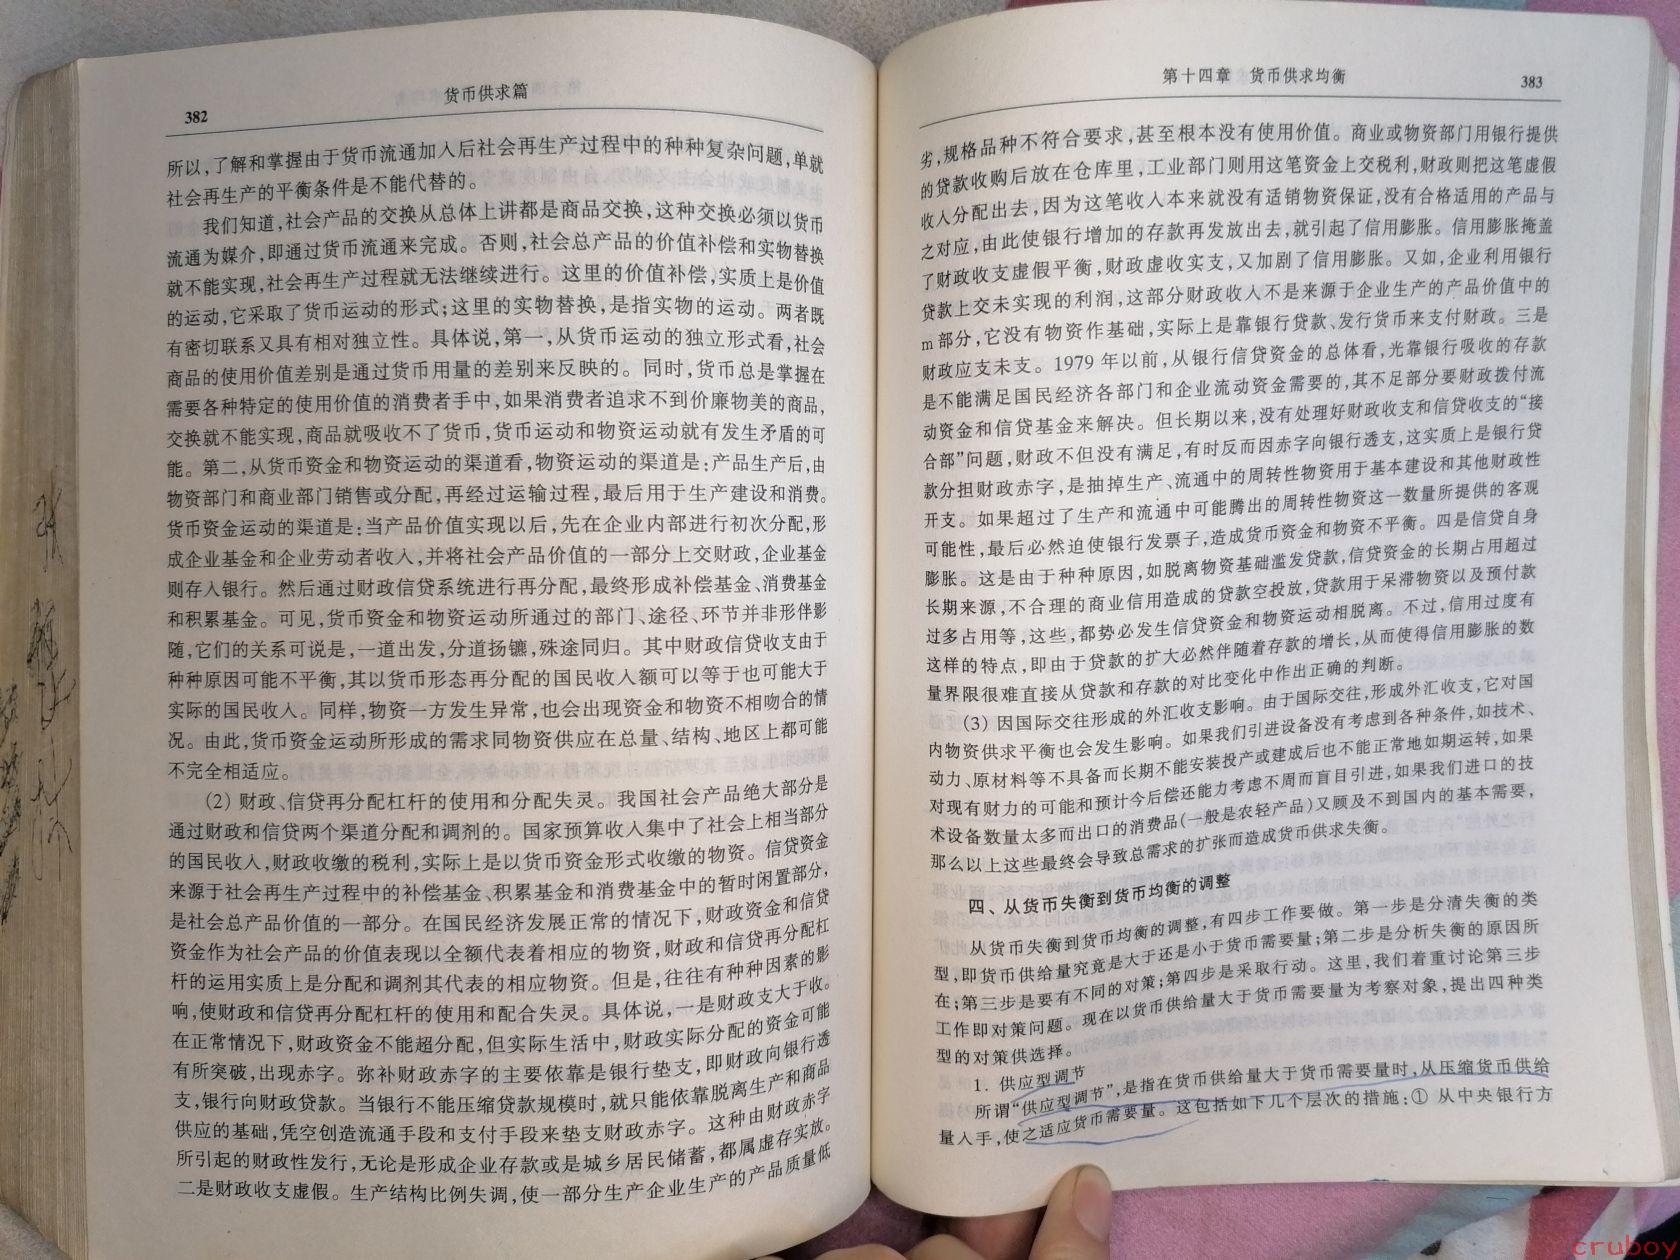 382
货币供求篇
所以,了解和掌握由于货币流通加入后社会再生产过程中的种种复杂问题,单就
社会再生产的平衡条件是不能代替的。
我们知道,社会产品的交换从总体上讲都是商品交换,这种交换必须以货币
流通为媒介,即通过货币流通来完成。否则,社会总产品的价值补偿和实物替换
就不能实现,社会再生产过程就无法继续进行。这里的价值补偿,实质上是价值
的运动,它采取了货币运动的形式;这里的实物替换,是指实物的运动。两者既
有密切联系又具有相对独立性。具体说,第一,从货币运动的独立形式看,社会
商品的使用价值差别是通过货币用量的差别来反映的。同时,货币总是掌握在
需要各种特定的使用价值的消费者手中,如果消费者追求不到价廉物美的商品,
交换就不能实现,商品就吸收不了货币,货币运动和物资运动就有发生矛盾的可
能。第二,从货币资金和物资运动的渠道看,物资运动的渠道是:产品生产后,由
物资部门和商业部门销售或分配,再经过运输过程,最后用于生产建设和消费。
货币资金运动的渠道是:当产品价值实现以后,先在企业内部进行初次分配,形
成企业基金和企业劳动者收入,并将社会产品价值的一部分上交财政,企业基金
则存入银行。然后通过财政信贷系统进行再分配,最终形成补偿基金、消费基金
和积累基金。可见,货币资金和物资运动所通过的部门、途径、环节并非形伴影
随,它们的关系可说是,一道出发,分道扬镳,殊途同归。其中财政信贷收支由于
种种原因可能不平衡,其以货币形态再分配的国民收入额可以等于也可能大于
实际的国民收入。同样,物资一方发生异常,也会出现资金和物资不相吻合的情
况。由此,货币资金运动所形成的需求同物资供应在总量、结构、地区上都可能
不完全相适应。
(2) 财政、信贷再分配杠杆的使用和分配失灵。我国社会产品绝大部分是
通过财政和信贷两个渠道分配和调剂的。国家预算收入集中了社会上相当部分
的国民收入,财政收缴的税利,实际上是以货币资金形式收缴的物资。信贷资金
来源于社会再生产过程中的补偿基金、积累基金和消费基金中的暂时闲置部分,
是社会总产品价值的一部分。在国民经济发展正常的情况下,财政资金和信贷
资金作为社会产品的价值表现以全额代表着相应的物资,财政和信贷再分配杠
杆的运用实质上是分配和调剂其代表的相应物资。但是,往往有种种因素的影
响,使财政和信贷再分配杠杆的使用和配合失灵。具体说,一是财政支大于收。
在正常情况下,财政资金不能超分配,但实际生活中,财政实际分配的资金可能
有所突破,出现赤字。弥补财政赤字的主要依靠是银行垫支,即财政向银行透
支,银行向财政贷款。当银行不能压缩贷款规模时,就只能依靠脱离生产和商品
供应的基础,凭空创造流通手段和支付手段来垫支财政赤字。这种由财政赤字
所引起的财政性发行,无论是形成企业存款或是城乡居民储蓄,都属虚存实放。
二是财政收支虚假。生产结构比例失调,使一部分生产企业生产的产品质量低
第十四章 货币供求均衡
383
劣,规格品种不符合要求,甚至根本没有使用价值。商业或物资部门用银行提供
的贷款收购后放在仓库里,工业部门则用这笔资金上交税利,财政则把这笔虚假
收入分配出去,因为这笔收入本来就没有适销物资保证,没有合格适用的产品与
之对应,由此使银行增加的存款再发放出去,就引起了信用膨胀。信用膨胀掩盖
了财政收支虚假平衡,财政虚收实支,又加剧了信用膨胀。又如,企业利用银行
贷款上交未实现的利润,这部分财政收入不是来源于企业生产的产品价值中的
m部分,它没有物资作基础,实际上是靠银行贷款、发行货币来支付财政。三是
财政应支未支。1979 年以前,从银行信贷资金的总体看,光靠银行吸收的存款
是不能满足国民经济各部门和企业流动资金需要的,其不足部分要财政拨付流
动资金和信贷基金来解决。但长期以来,没有处理好财政收支和信贷收支的“接
合部”问题,财政不但没有满足,有时反而因赤字向银行透支,这实质上是银行贷
款分担财政赤字,是抽掉生产、流通中的周转性物资用于基本建设和其他财政性
开支。如果超过了生产和流通中可能腾出的周转性物资这一数量所提供的客观
可能性,最后必然迫使银行发票子,造成货币资金和物资不平衡。四是信贷自身
膨胀。这是由于种种原因,如脱离物资基础滥发贷款,信贷资金的长期占用超过
长期来源,不合理的商业信用造成的贷款空投放,贷款用于呆滞物资以及预付款
过多占用等,这些,都势必发生信贷资金和物资运动相脱离。不过,信用过度有
这样的特点,即由于贷款的扩大必然伴随着存款的增长,从而使得信用膨胀的数
量界限很难直接从贷款和存款的对比变化中作出正确的判断。
(3) 因国际交往形成的外汇收支影响。由于国际交往,形成外汇收支,它对国
内物资供求平衡也会发生影响。如果我们引进设备没有考虑到各种条件,如技术、
动力、原材料等不具备而长期不能安装投产或建成后也不能正常地如期运转,如果
对现有财力的可能和预计今后偿还能力考虑不周而盲目引进,如果我们进口的技
术设备数量太多而出口的消费品(一般是农轻产品)又顾及不到国内的基本需要,
那么以上这些最终会导致总需求的扩张而造成货币供求失衡。
四、从货币失衡到货币均衡的调整
从货币失衡到货币均衡的调整,有四步工作要做。第一步是分清失衡的类
型,即货币供给量究竟是大于还是小于货币需要量;第二步是分析失衡的原因所
在;第三步是要有不同的对策;第四步是采取行动。这里,我们着重讨论第三步
工作即对策问题。现在以货币供给量大于货币需要量为考察对象,提出四种类
型的对策供选择。
1. 供应型调节
所谓“供应型调节”,是指在货币供给量大于货币需要量时,从压缩货币供给
量入手,使之适应货币需要量。这包括如下几个层次的措施:① 从中央银行方
cruboy